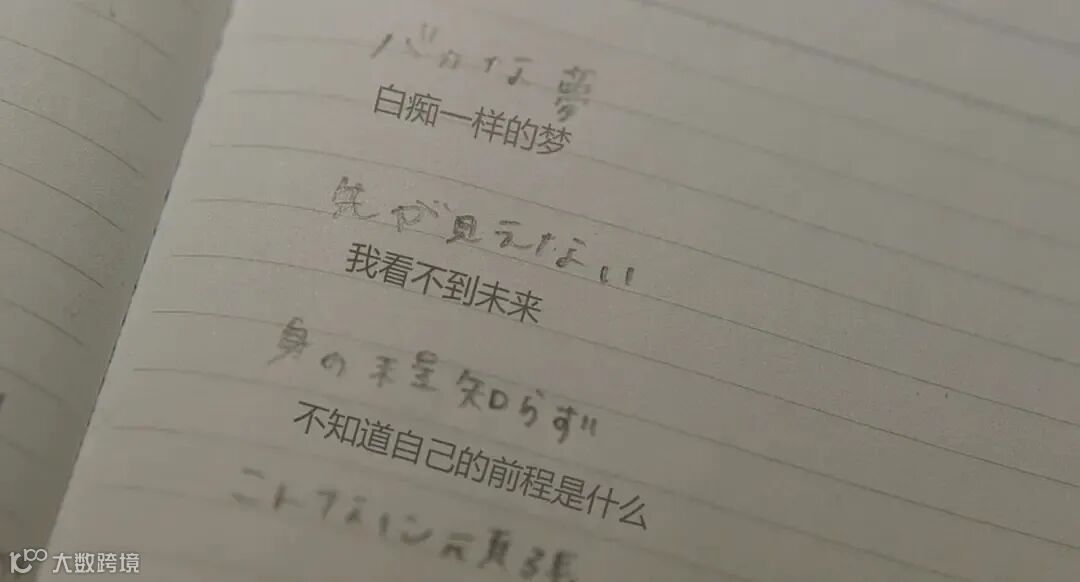 バカな夢
白痴一样的梦
先が見えない
我看不到未来
身の程知らず
不知道自己的前程是什么
大数跨境